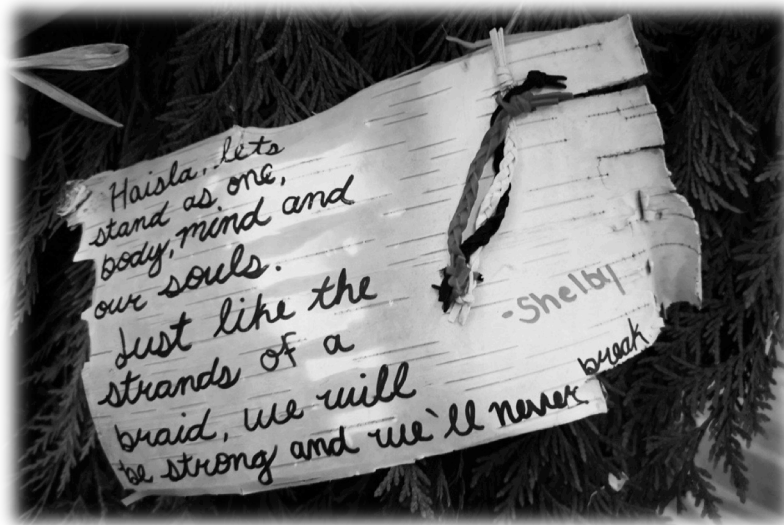 Haisla, lets
stand as one,
body, mind and
our souls.
Just like the
strands of a
braid, we will
be strong and we'll never break
-Shelby